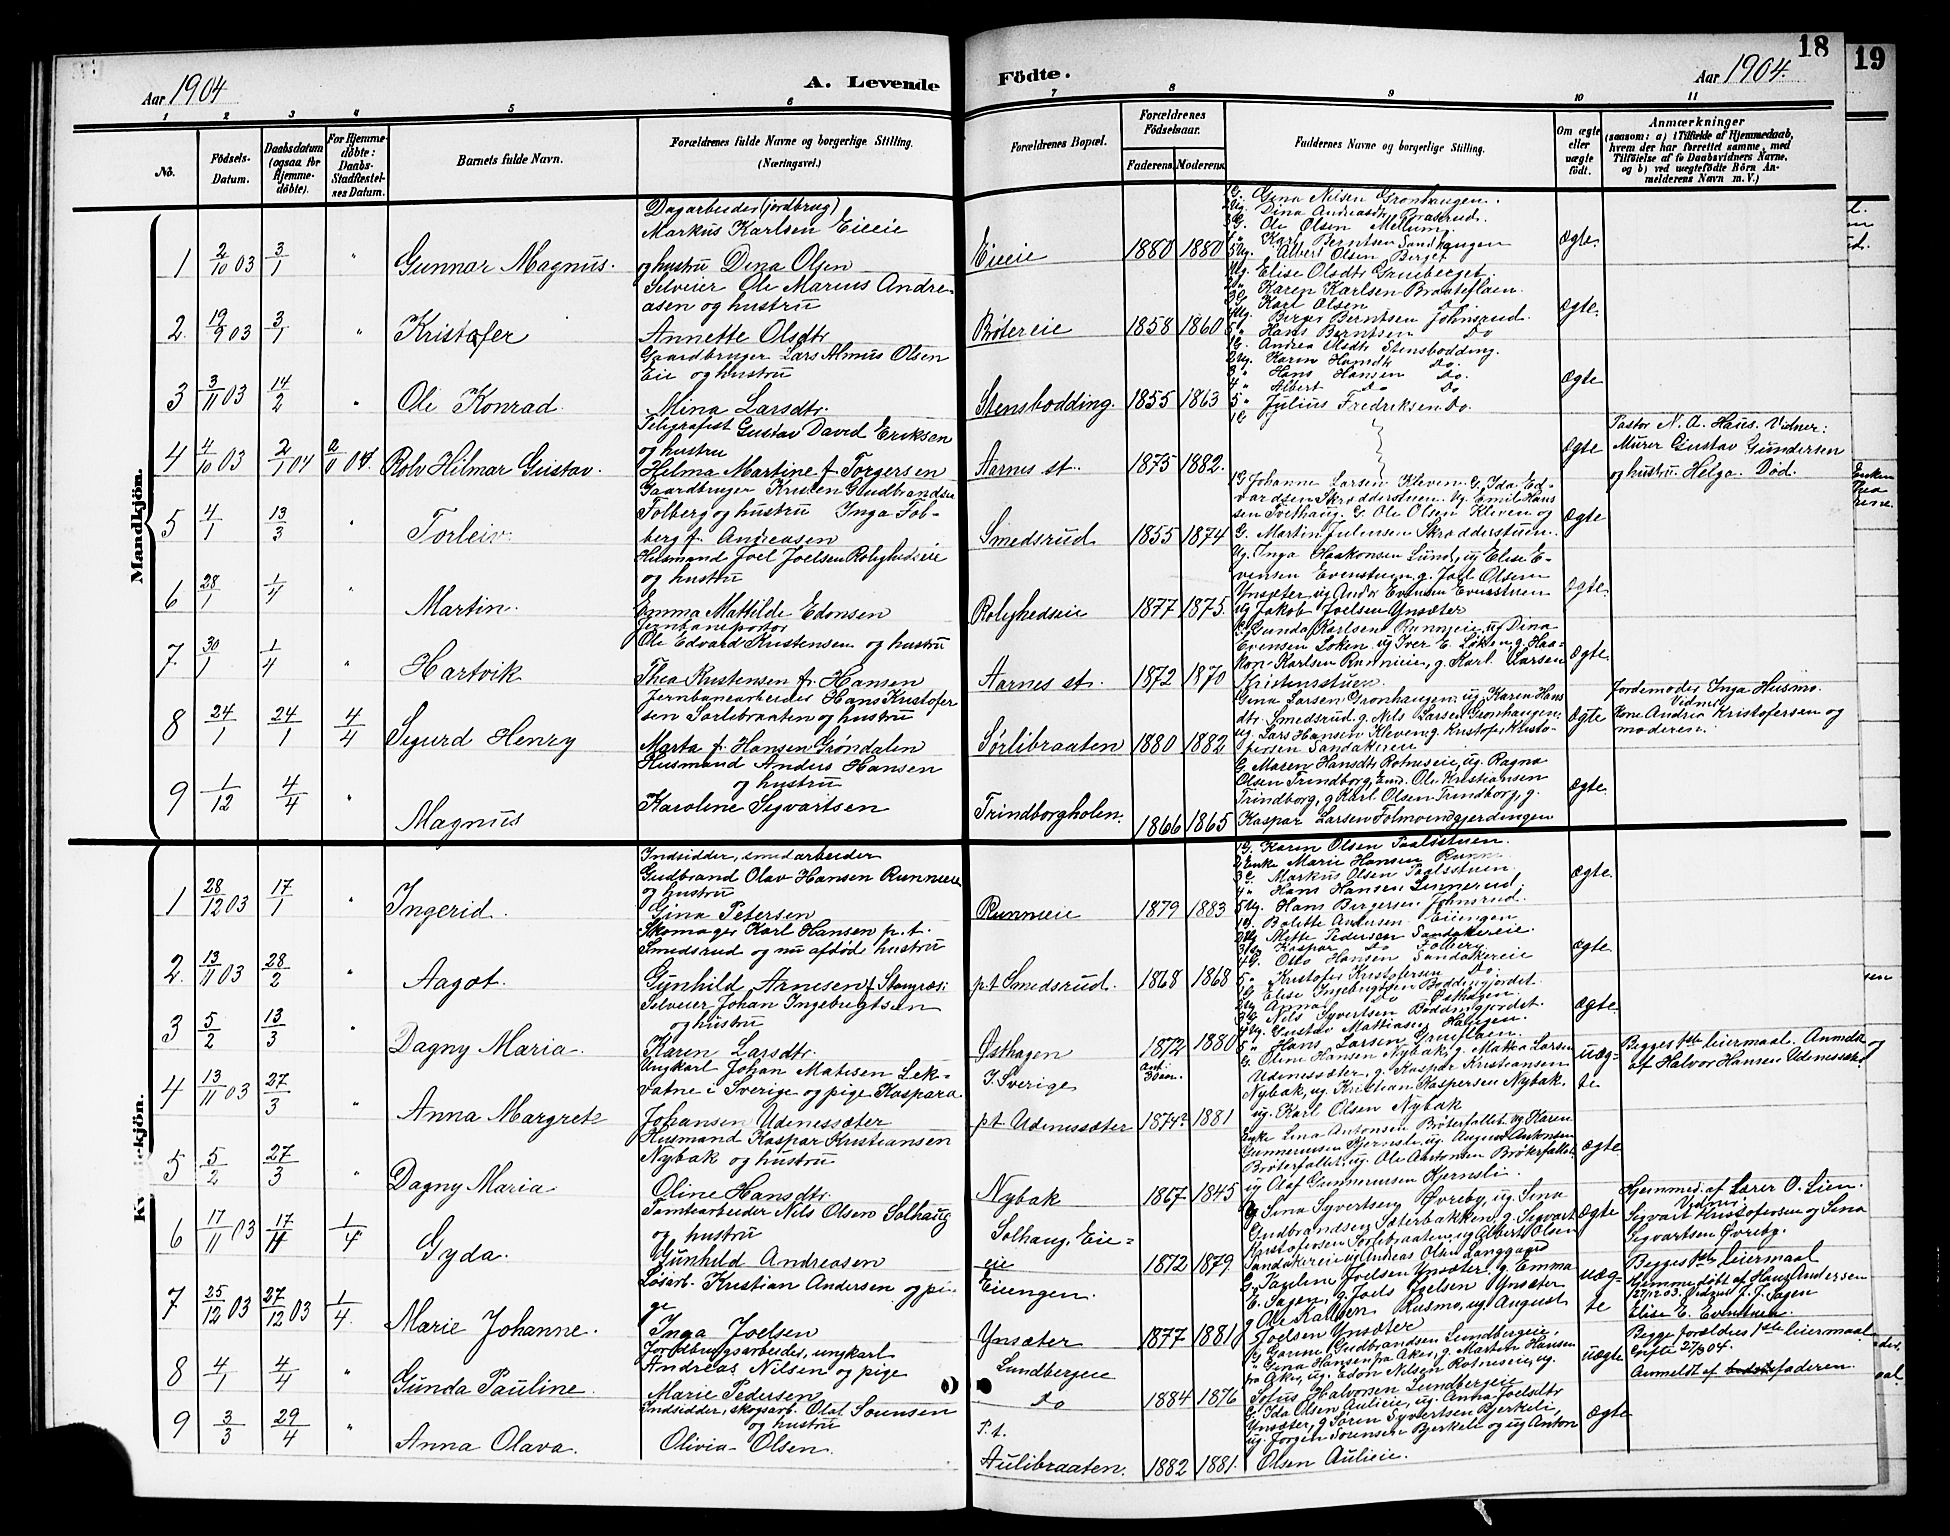 18
19
Aar 1904
A. Levende
Födte.
Aar 1904.
1 2 3 4 5 6 7 8 9 10 11
No.
Födsels-
Datum.
Daabsdatum
(ogsaa for
Hjemme-
döbte).
For Hjemme-
döbte:
Daabs-
Stadfæstel-
ses Datum.
Barnets fulde Navn.
Forældrenes fulde Navne og borgerlige Stilling.
(Næringsvei.)
Forældrenes Bopæl.
Forældrenes
Födselsaar.
Faderens. Moderens.
Faddernes Navne og borgerlige Stilling.
Om ægte
eller
uægte
födt.
Anmærkninger
(saasom: a) i Tilfælde af Hjemmedaab,
hvem der har forrettet samme, med
Tilföielse af to Daabsvidners Navne,
og b) ved uægtefödte Börn An-
melderens Navn m. V.)
Mandkjön.
1 2/10 03 3/1 " Gunnar Magnus.
Dagarbeider (jordbrug)
Markus Karlsen Eieeie
og hustru Dina Olsen
Eieeie 1880 1880
G. Gina Nilsen Grønhaugen.
Ug. Dina Andreasdtr Braserud.
G. Ole Olsen Mellum.
Karl Berntsen Sandhaugen
Ug. Albert Olsen Berget
ægte
2. 19/9 03 3/1 " Kristofer
Selveier Ole Marius Andre-
asen og hustru
Annette Olsdtr
Brøtereie 1858 1860
Ug. Elise Olsdtr Grneberget.
" Karen Karlsen Braateflaen.
G. Karl Olsen Do.
Ug. Berger Berntsen Johnsrud.
" Hans Berntsen Do
ægte
3 3/11 03 14/2 " Ole Konrad.
Gaardbruger Lars Almus Olsen
Eie og hustru
Mina Larsdtr.
Stensbodding. 1855 1863
G. Andrea Olsdtr Stensbodding.
Ug. Karen Hansdtr Do.
" Hans Hansen Do.
" Albert Do Do
" Julius Fredriksen Do.
ægte
4 4/10 03 2/1 04 Rolv Hilmar Gustav.
Teligrafist Gustav David Eriksen
og hustru
Hilma Martine f. Torgersen
Aarnes st. 1875 1882.
ægte
Pastor N. A. Haus. Vidner:
Murer Gustav Gundersen
og hustru Helga. Død.
5 4/1 13/3 " Torleiv.
Gaardbruger Kristen Gudbrandsen
Folberg og hustru Inga Fol-
berg f. Andreasen
Smedsrud 1855 1874
G. Johanne Larsen Kleven. G. Ida Ed-
vardsen Skrædderstuen. Ug. Emil Hans
sen Tvethaug. G. Ole Olsen Kleven og
G. Martin Julensen Skrædderstuen.
ægte
6 28/1 1/4 " Martin.
Husmand Joel Joelsen Rolighedseie
og hustru
Emma Mathilde Edonsen
Rolighedseie 1877 1875.
Ug. Inga Haakonsen Lund, ug Elise E-
vensen Evenstuen, g. Joel Olsen
Ynsæter, ug Andr. Evensen Evenstuen
ug Jakob Joelsen Ynsæter
ægte.
7. 30/1 1/4 " Hartvik
Jernbaneportør
Ole Edvard Kristensen og hustru
Thea Kristensen f. Hansen
Aarnes st. 1872 1870
G. Gunda Karlsen Runneie, ug Dina
Evensen Løken, ug Iver E. Løken, g. Haa-
kon Karlsen Runneie, g. Karl Larsen
Kristenstuen.
ægte.
8 24/1 24/1 4/4 Sigurd Henry
Jernbanearbeider Hans Kristofer
sen Sørlibraaten og hustru
Marta f. Hansen Grøndalen
Sørlibraaten 1880 1882
Gina Larsen Grønhaugen, ug. Karen Hans
dtr. Smedsrud, g. Nils Larsen Grønhaugen,
ug. Lars Hansen Kleven g. Kristofer Kristo-
fersen Sandakereie
ægte
Jordemoder Inga Husmo.
Vidner
Kone Andrea Kristofersen og
moderen.
9 1/12 4/4 " Magnus
Husmand Anders Hansen
og hustru
Karoline Sigvartsen
Trindborgholen. 1866 1865
G. Maren Hansdtr Rotneseie, ug. Ragna
Olsen Trindborg, Emd. Ole Kristiansen
Trindborg, g Karl Olsen Trindborg, g.
Kaspar Larsen Folmoengjerdingen
ægte.
1 28/12 03 17/1 " Ingerid.
Indsidder, smedarbeider
Gudbrand Olav Hansen Runneie
og hustru
Gina Petersen
Runneie 1879 1883
G. Karen Olsen Paalsstuen.
Enke Marie Hansen
G. Markus Olsen Paalsstuen
" Hans Hansen Linnerud.
Ug. Hans Bergersen Johnsrud.
ægte.
2. 13/11 03 28/2 " Aagot.
Skomager Karl Hansen p.t.
Smedsrud og nu afdød hustru
Gunhild Arnesen f. Stangnæs:
p.t Smedsrud. 1868 1868
G. Bolette Andersen Eiengen
Ug Mette Pedersen Sandakereie.
Kaspar Do Folberg
G. Otto Hansen Sandakereie
" Kristofer Kristofersen Do.
ægte.
3 5/2 13/3 " Dagny Maria.
Selveier Johan Ingebrigtsen
og hustru
Karen Larsdtr.
Østhagen 1872 1880
G Elise Ingebrigtsen Boddingjordet
Ug Anna Do Østhagen.
G. Nils Syvertsen Boddingjordet.
Ug. Gustav Mathiasen Haugen.
" Hans Larsen
ægte
4 13/11 03 27/3 " Anna Margrete
Ungkarl Johan Matisen Lek-
vatne i Sverige og pige Kaspara
Johansen Udenessæter
I Sverige
p.t Udenessæter 1874? 1881
G. Oline Hansen Nybak, g. Matea Larsen
Udenessæter, g. Kaspar Kristiansen
Nybak, ug Kristian Kaspersen Nybak.
ug. Karl Olsen Nybak
uæg-
te
Begges 1ste leiermaal. Anmeldt
af Halvor Hansen Udenessæt.
5 5/2 27/3 " Dagny Maria
Husmand Kaspar Kristiansen
Nybak og hustru
Oline Hansdtr.
Nybak 1867 1845
Enke Lina Antonsen Brøterfallet, ug Karen
Gunnerusen Hjernsli, ug. August Antonsen
Brøterfallet, ug. Ole Antonsen Brøterfallet.
ug Olaf Gunnerusen Hjernsli.
ægte
6 17/11 03 1/4 Gyda.
Tomtearbeider Nils Olsen Solhaug
og hustru
Gunhild Andreasen
Solhaug, Eie-
eie 1872 1879.
G Sina Syvertsen Øvreby, ug. Sina
Gudbrandsen Sæterbakken, g. Sigvart
Kristofersen Sørlibraaten, ug Albert Olsen
Sandakereie ug Andreas Olsen Langgaard
ægte
Hjemmed. af Lærer O. Lien.
Vidner
Sigvart Kristofersen og Sina
Sigvartsen Øvreby.
7 25/12 03 27/12 03 1/4. Marie Johanne.
Løsarb. Kristian Andersen og pi-
ge
Inga Joelsen
Eiengen.
Ynsæter 1877 1881
G. Pauline Joelsen Ynsæter, g. Emma
E. Sagen, g. Joels Joelsen Ynsæter
g Ole Karlsen Rusmo, ug August
Joelsen Ynsæter
uæg-
te
Begges 1ste leiermaal
Hjemmedøbt af Hans Andersen
27/12 03. Vidner J. J. Sagen
Elise E. Evenstuen.
8 4/1 4/4 " Gunda Pauline.
Jordbrugsarbeider, ungkarl
Andreas Nilsen og pige
Marie Pedersen
Lundbergeie
Do 1884 1876
G Gunne Gudbrandsen Lundbergeie,
g. Gina Hansen fra Aker, g. Martin Hansen
fra Aker, ug. Edon Nilsen Rotneseie, ug.
Sofus Halvorsen Lundbergeie
uægte
Begge forældres 1ste leiermaal
Gifte 27/3 04.
Anmeldt af faderen.
9 3/3 29/4 " Anna Olava.
Indsidder, skogsarb. Olaf Sørensen
og hustru
Olivia Olsen.
P.t.
Aulibraaten. 1882 1881.
G. Ida Olsen Aulieie, ug. Anna Joelsdtr
Ynsæter, g Søren Syvertsen Bjerkeli,
ug. Jørgen Sørensen Bjerkeli og ug Anton
Olsen Aulieie.
ægte